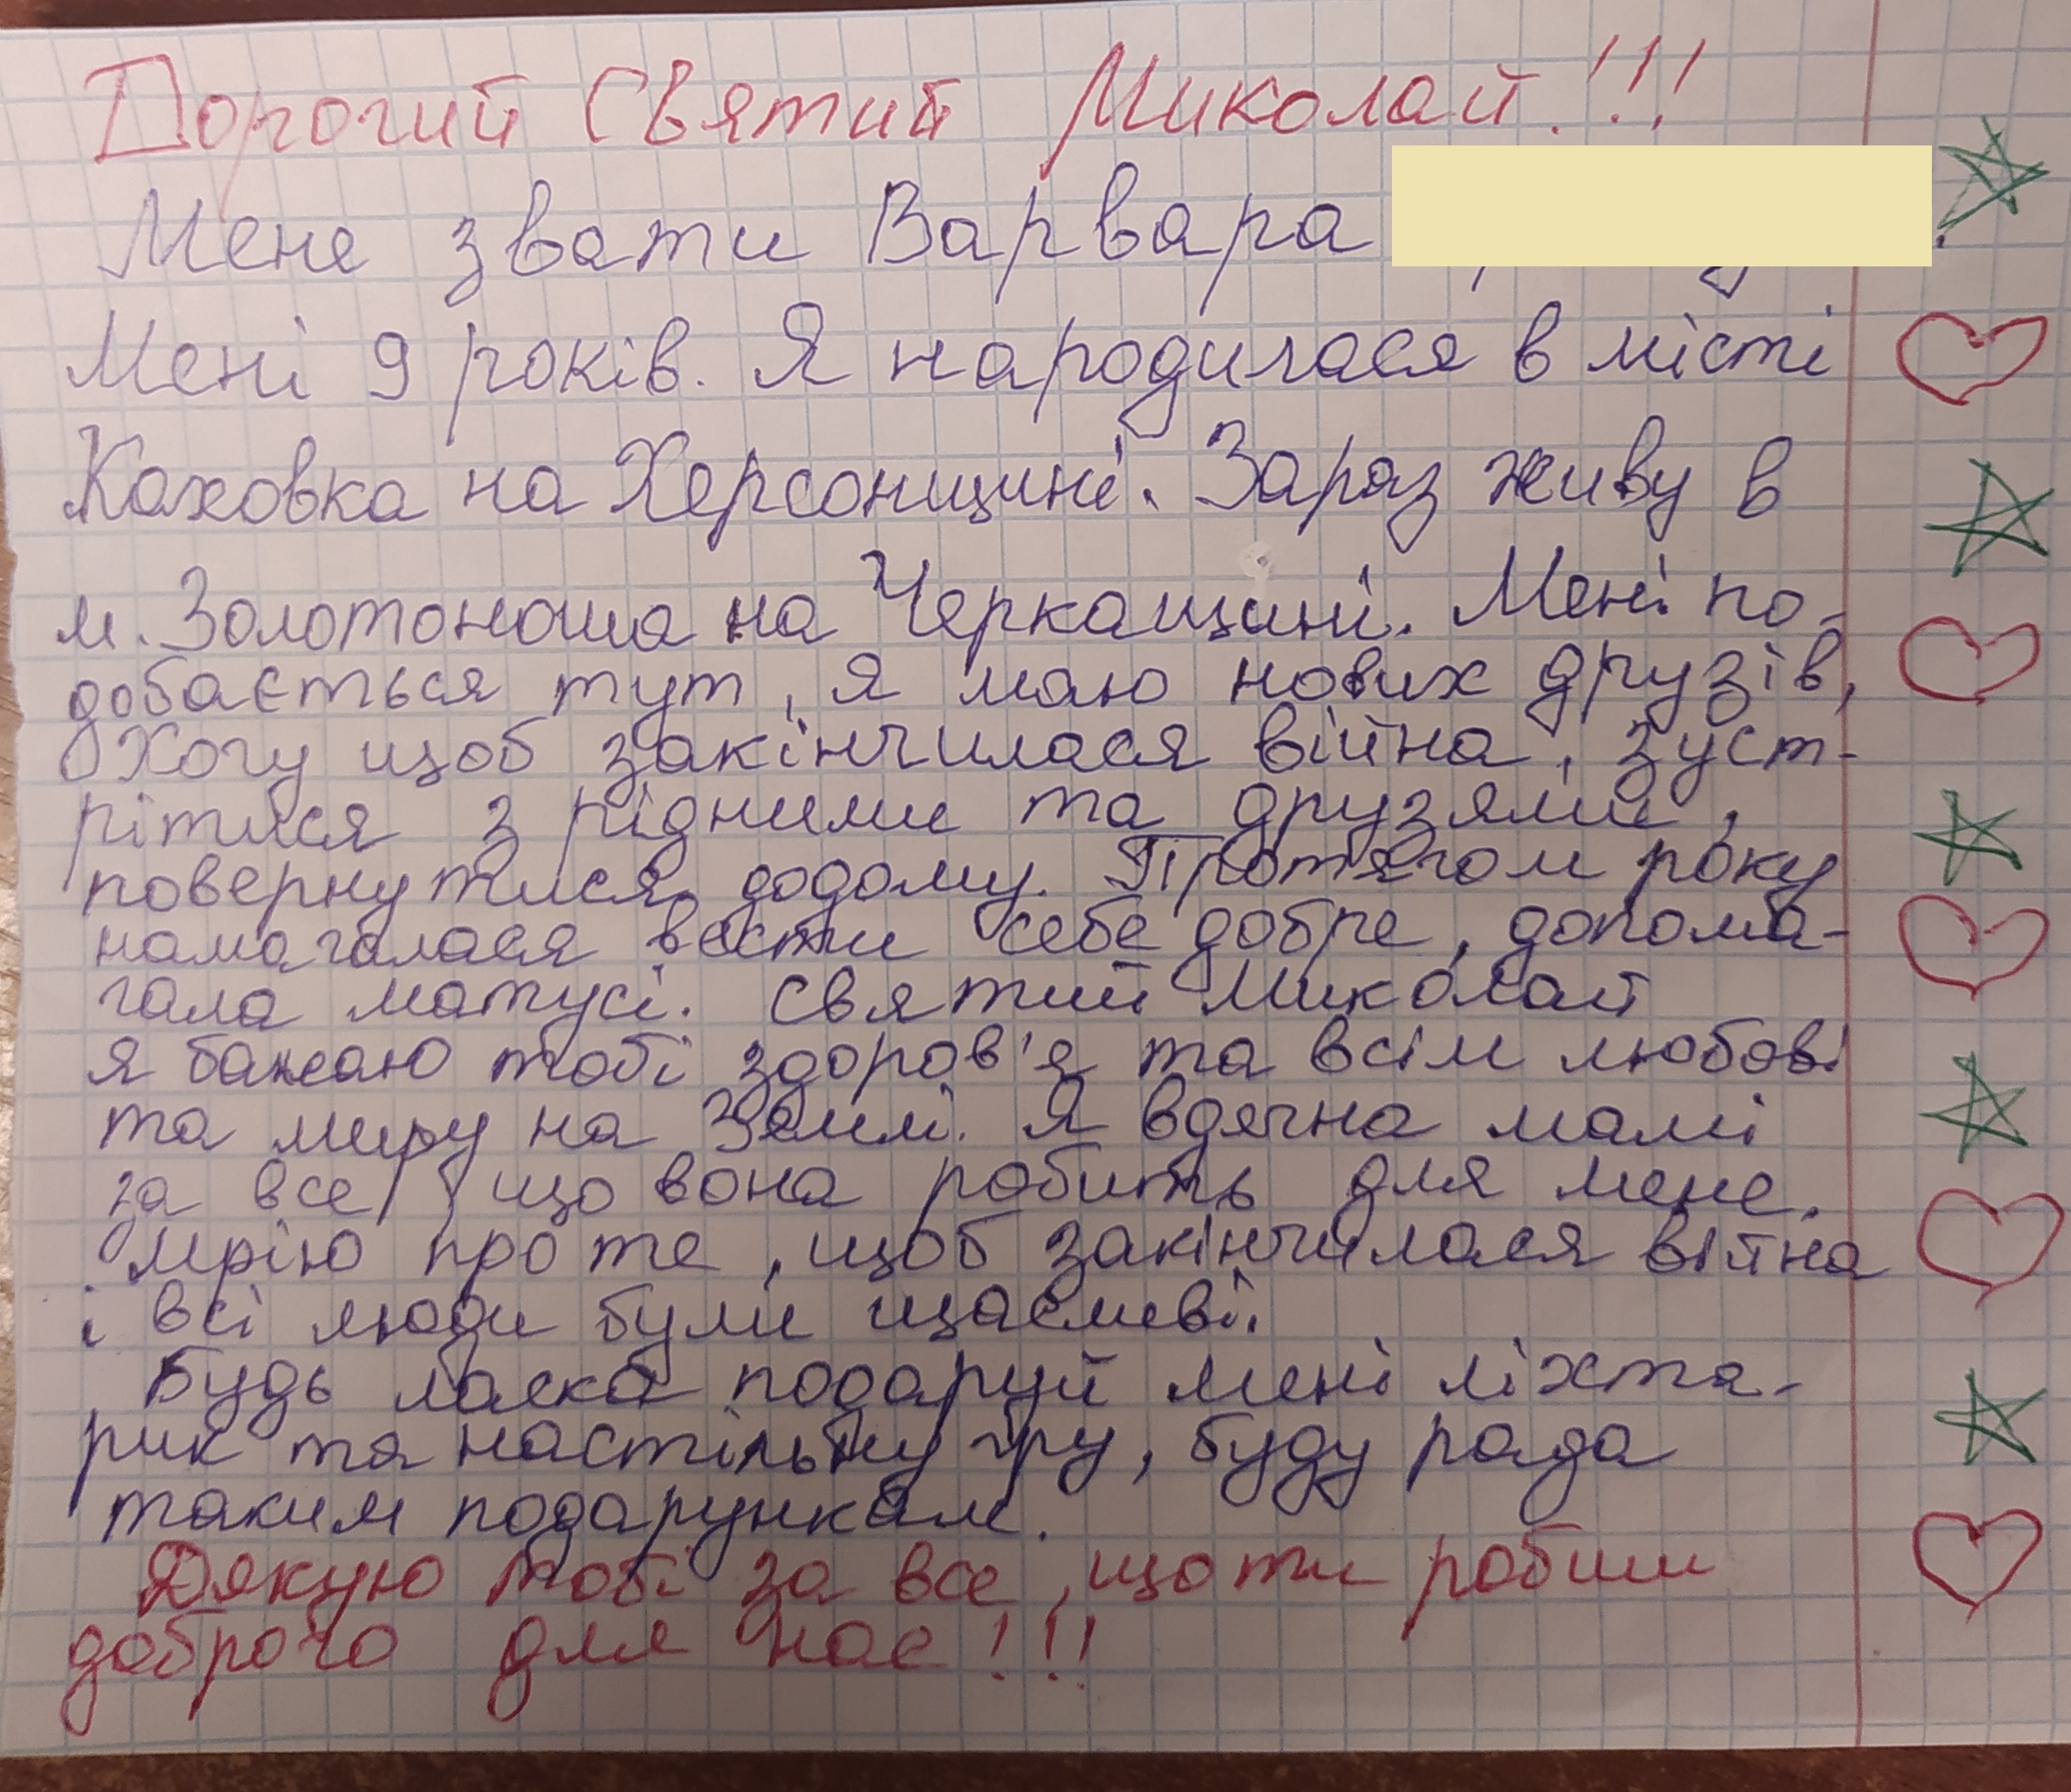 Дорогий Святий Миколай!!!
Мене звати Варвара
Мені 9 років. Я народилася в місті
Каховка на Херсонщині. Зараз живу в
м. Золотоноша на Черкащині. Мені по-
добається тут, я маю нових друзів,
Хочу щоб закінчилася війна, зуст-
рітися з рідними та друзями,
повернутися додому. Протягом року
намагалася вести себе добре, допома-
гала матусі. Святий Миколай
я бажаю тобі здоров'я та всім любові
та миру на Землі. Я вдячна мамі
за все, що вона робить для мене.
Мрію про те, щоб закінчилася війна
і всі люди були щасливі.
Будь ласка подаруй мені ліхта-
рик та настільну гру, буду рада
таким подарункам.
Дякую тобі за все, що ти робиш
доброго для нас!!!